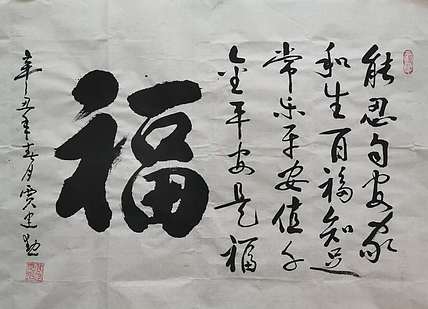 能忍自安家
和生百福知足
常乐平安值千
金平安是福
福
辛丑年春月